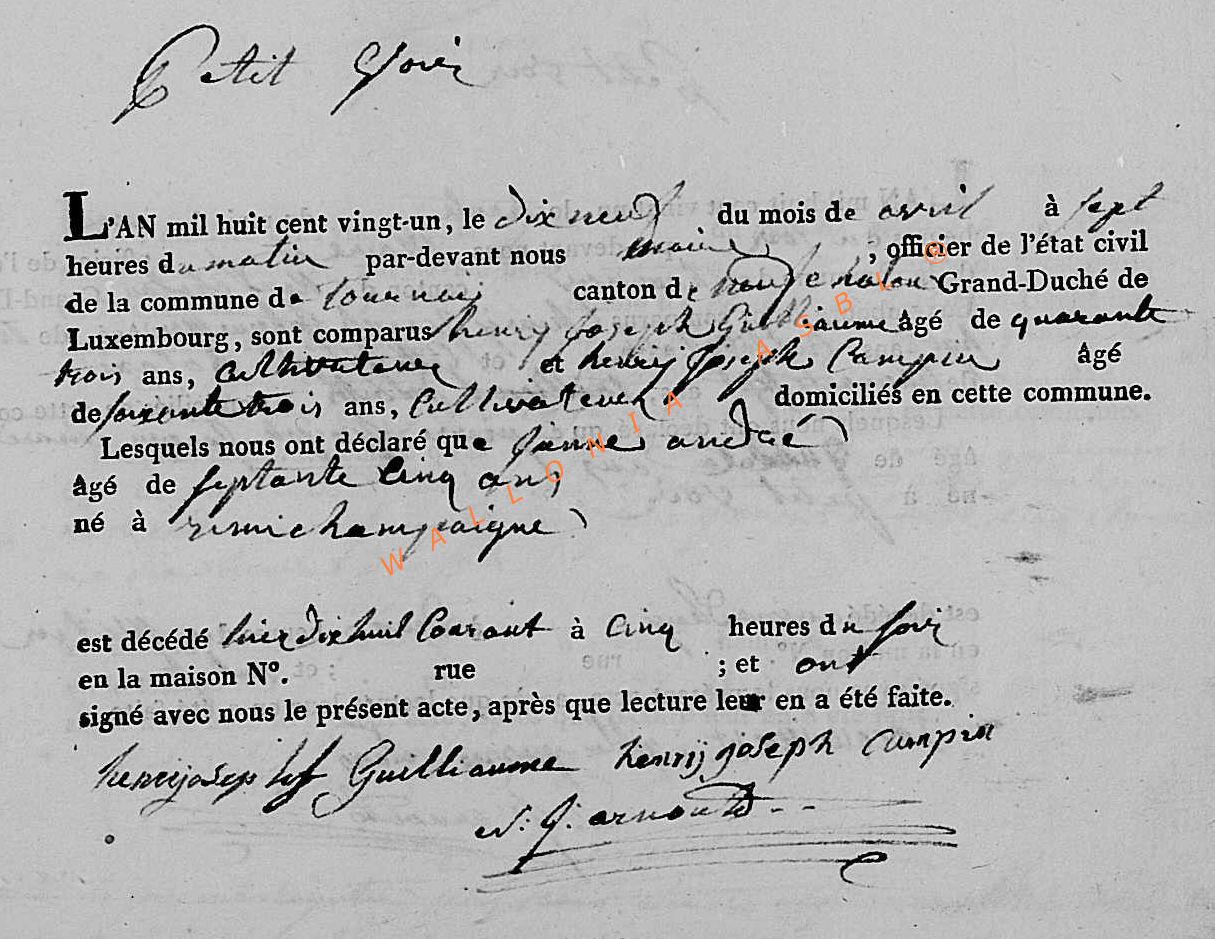 Petit Voir
L'AN mil huit cent vingt-un, le dix neuf du mois de avril à sept
heures du matin par-devant nous maire, ; officier de l'état civil
de la commune de tournay canton de neufchateau Grand-Duché de
Luxembourg, sont comparus henry Joseph Guilliaume âgé de quarante
trois ans, cultivateur et henry Joseph Campin âgé
de soixante trois ans, Cultivateur domiciliés en cette commune.
Lesquels nous ont déclaré que Jeanne andré
âgé de septante Cinq ans
né à remichampaigne
est décédé hier dix huit Courant à Cinq heures du soir
en la maison N°. rue ; et ont
signé avec nous le présent acte, après que lecture leur en a été faite.
henrijoseph Guilliaume henrij joseph Campin
N: J. arnould
WALLONIA ASBL ©